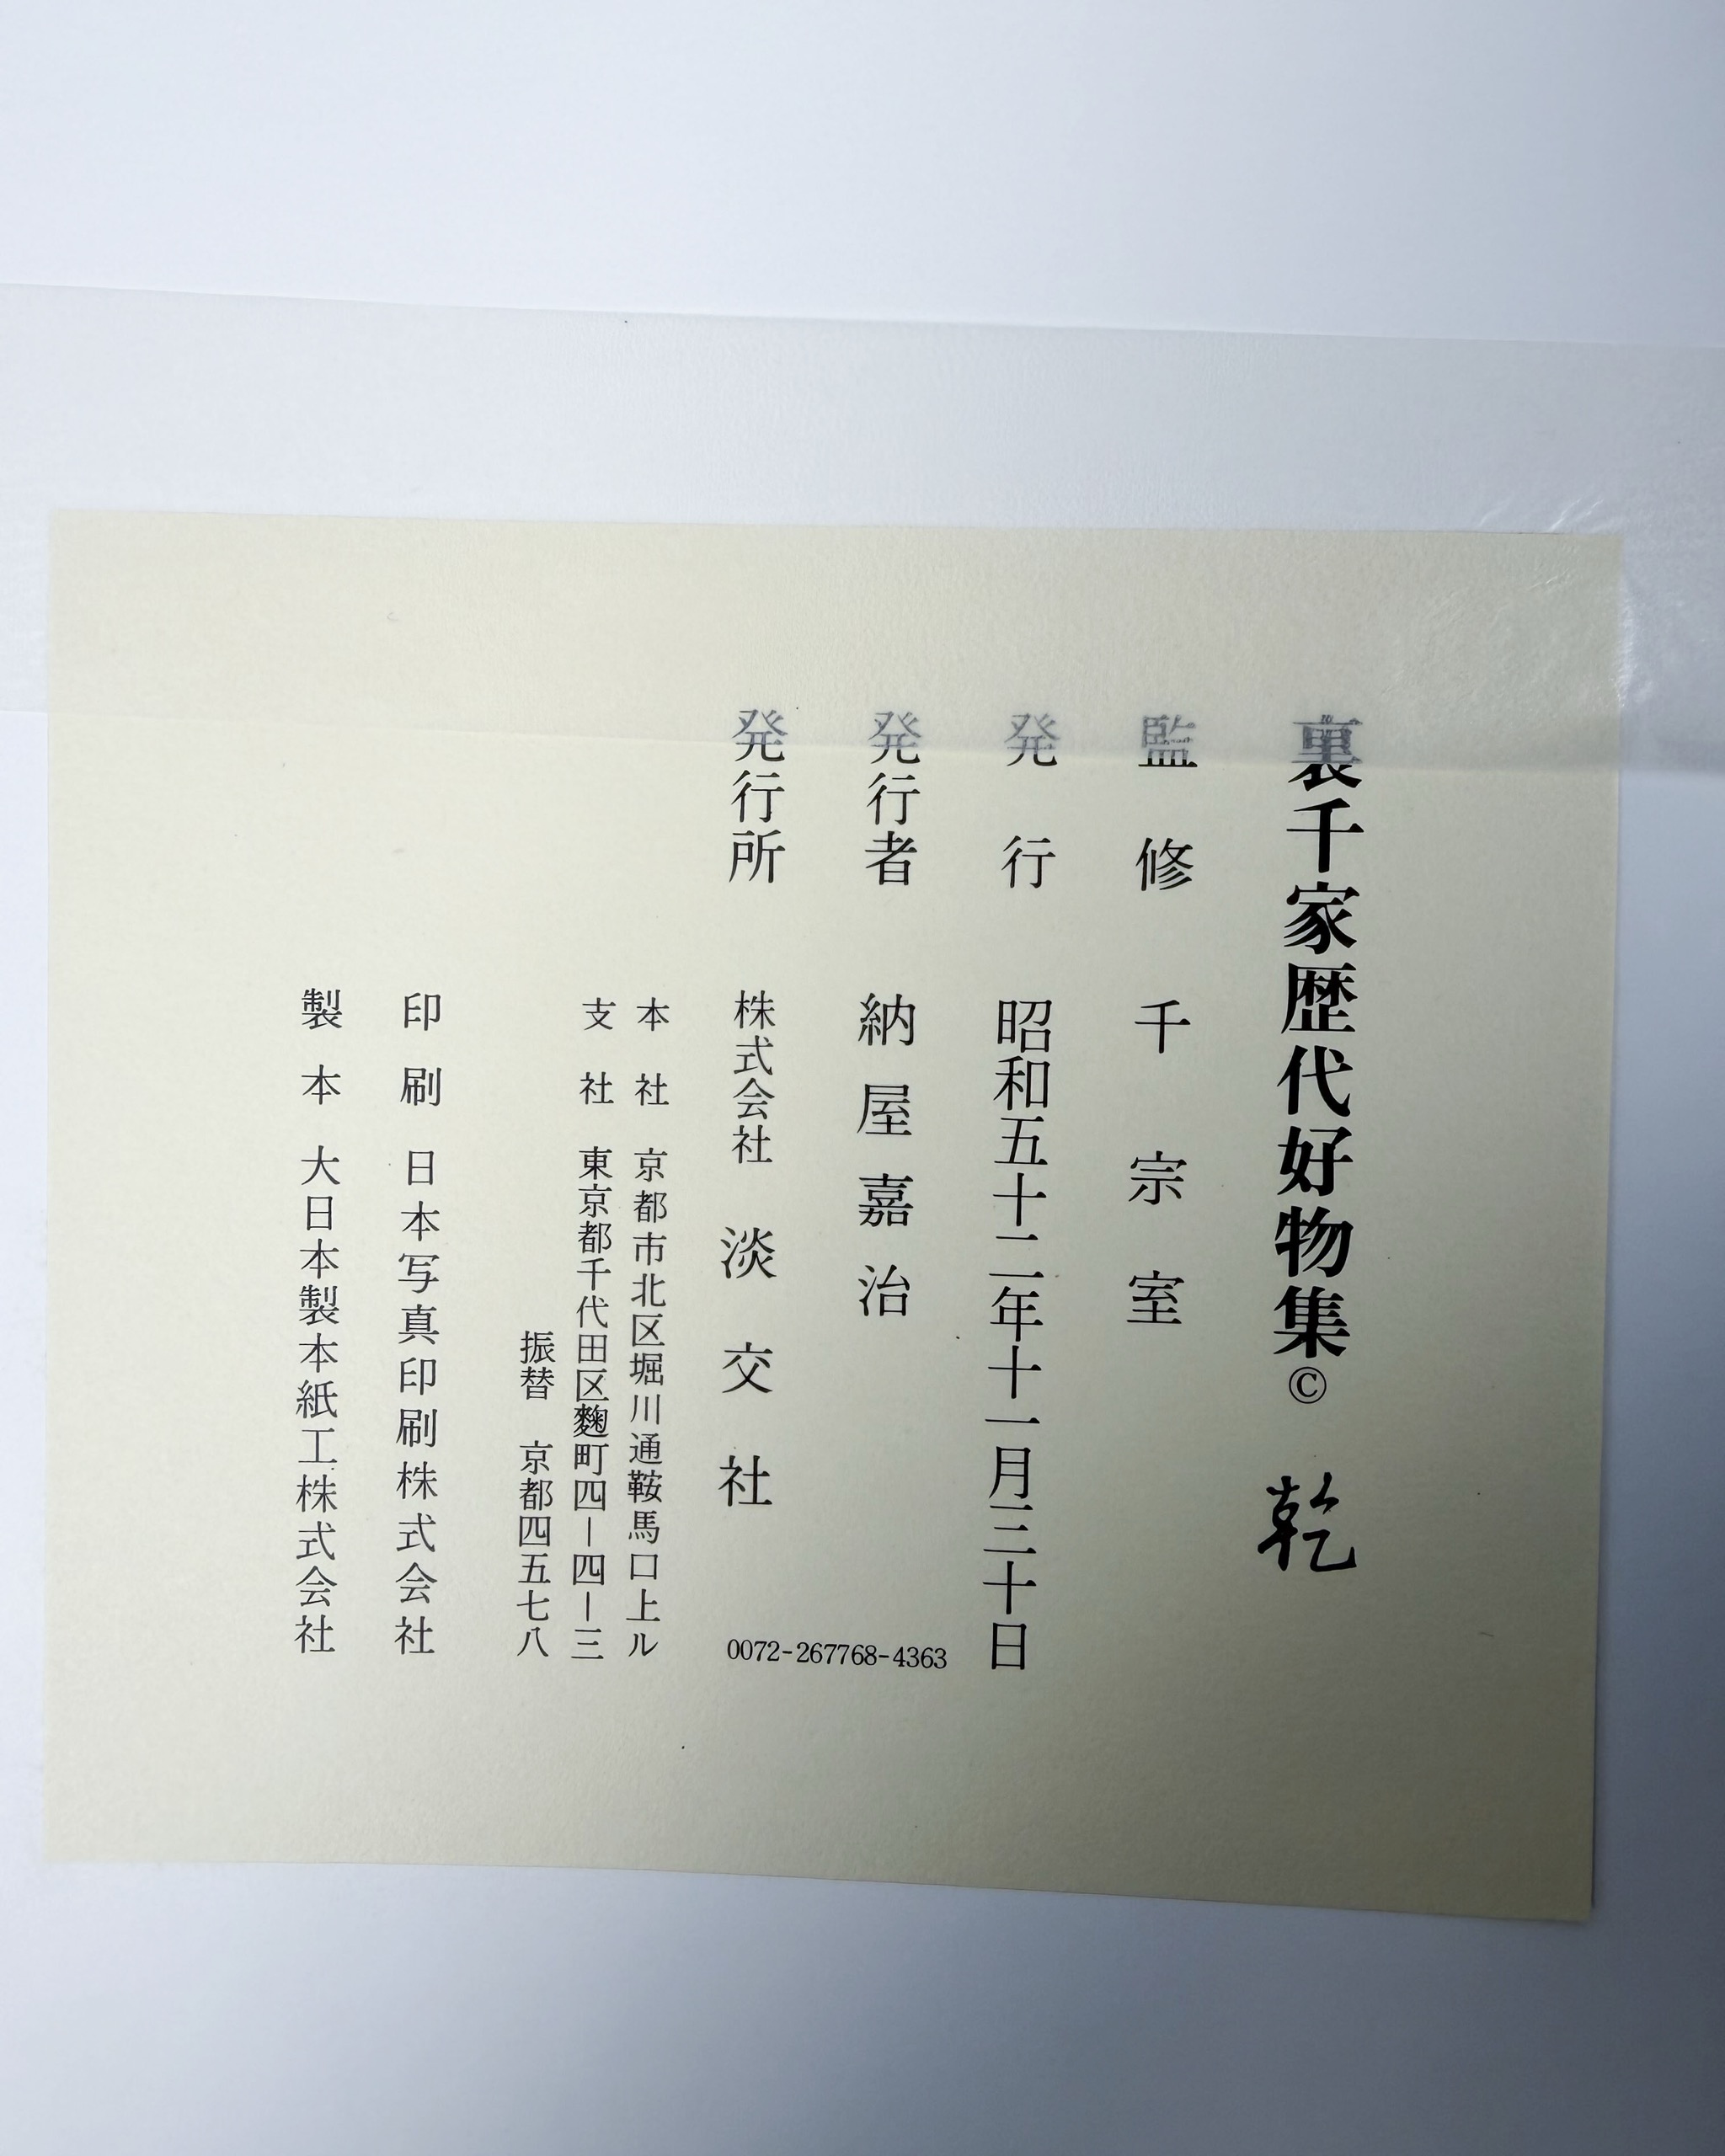 裏千家歴代好物集© 乾
監修 千宗室
発行 昭和五十二年十一月三十日
発行者 納屋嘉治
発行所 株式会社 淡交社
本社 京都市北区堀川通鞍馬口上ル
支社 東京都千代田区麴町四—四—三
振替 京都四五七八
印刷 日本写真印刷株式会社
製本 大日本製本紙工株式会社
0072-267768-4363